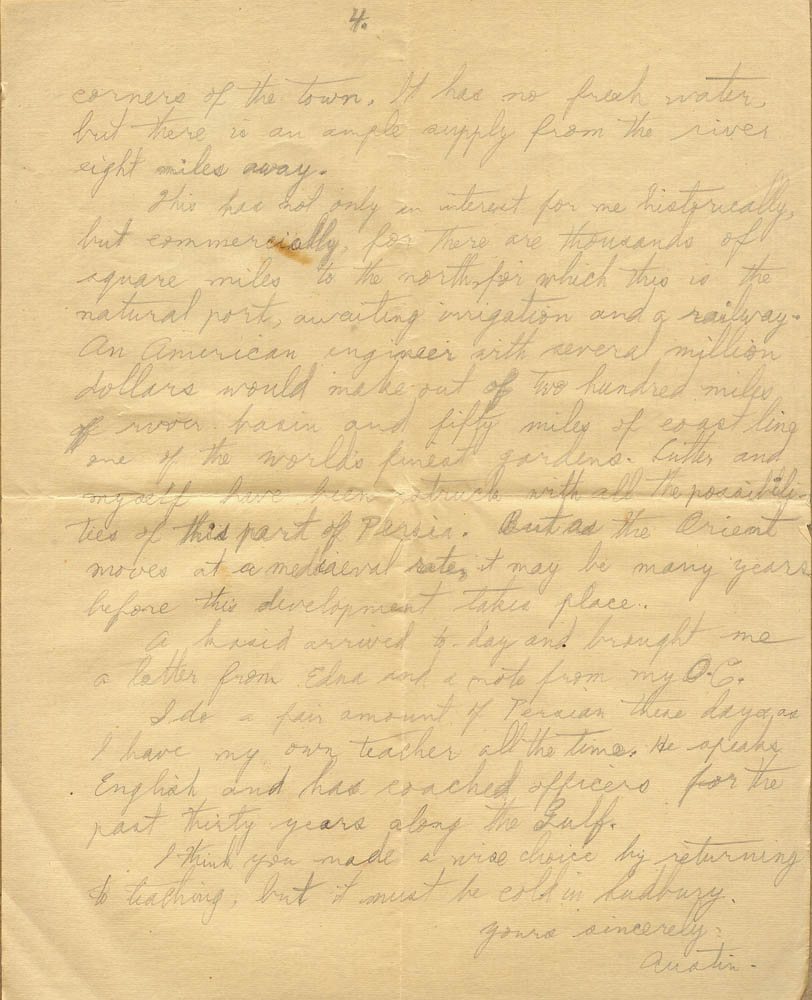 4.
corners of the town. It has no fresh water,
but there is an ample supply from the river
eight miles away.
This has not only an interest for me historically,
but commercially, for there are thousands of
square miles to the north, for which this is the
natural port, awaiting irrigation and a railway.
An American engineer with several million
dollars would make out of two hundred miles
of river basin and fifty miles of coast line
one of the world's finest gardens. Sutter and
myself have been struck with all the possibili-
ties of this part of Persia. But as the Orient
moves at a mediaeval rate, it may be many years
before this development takes place.
A arrived to-day and brought me
a letter from Edna and a note from my O.C.
I do a fair amount of Persian these days, as
I have my own teacher all the time. He speaks
English and has coached officers for the
past thirty years along the Gulf.
I think you made a wise choice by returning
to teaching, but it must be cold in Sudbury.
yours sincerely:
Austin.